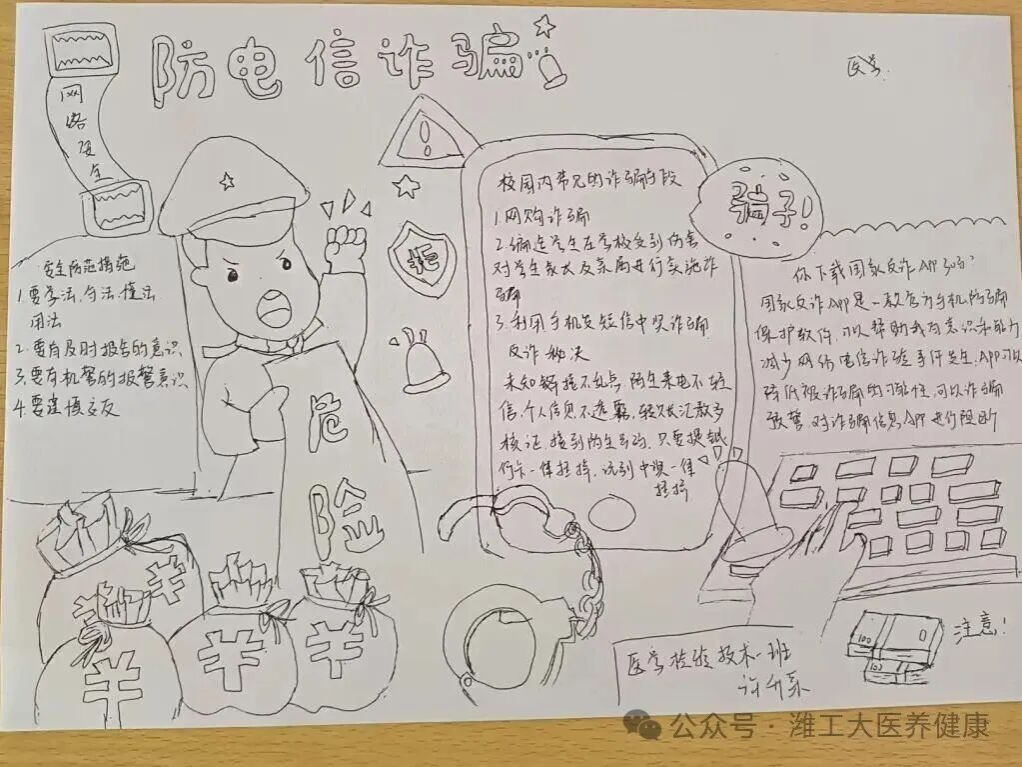 防电信诈骗
医学
网络安全
安全防范措施
1.要学法、守法、懂法
用法
2.要有及时报告的意识
3.要有机警的报警意识
4.要谨慎交友
危险
拒
校园内常见的诈骗手段
1.网购诈骗
2.编造学生在学校受到伤害
对学生家长及亲属进行实施诈
骗
3.利用手机发短信中奖诈骗
反诈秘决
未知链接不乱点,陌生来电不轻
信,个人信息不透露,转账汇款多
核证,接到陌生号码,只要提银
行卡一律挂掉,谈到中奖一律
挂掉
骗子!
你下载国家反诈APP了吗?
国家反诈APP是一款官方手机防骗
保护软件,可以帮助我们意识和能力
减少网络电信诈骗事件发生,APP可以
降低被诈骗的可能性,可以诈骗
预警,对诈骗信息APP进行阻断
羊
羊
羊
羊
羊
100
100
注意!
医学检验技术一班
公众号·潍工大医养健康